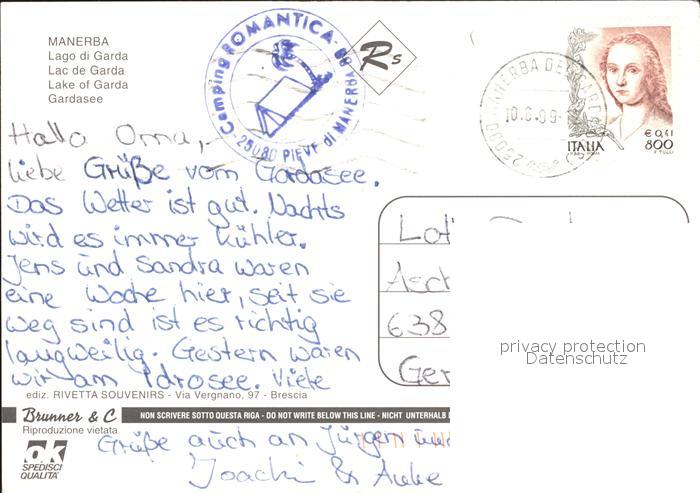 MANERBA
Lago di Garda
Lac de Garda
Lake of Garda
Gardasee
Camping ROMANTICA
25080 PIEVE di MANERBA BS
Rs
MANERBA DEL GARDA
ITALIA
€ 0,41
800
Hallo Oma,
liebe Grüße vom Gardasee.
Das Wetter ist gut. Nachts
wird es immer kühler.
Jens und Sandra waren
eine Woche hier, seit sie
weg sind ist es richtig
langweilig. Gestern waren
wir am Idrosee. Viele
Grüße auch an Jürgen
638
privacy protection
Datenschutz
ediz. RIVETTA SOUVENIRS - Via Vergnano, 97 - Brescia
Brunner & C
NON SCRIVERE SOTTO QUESTA RIGA - DO NOT WRITE BELOW THIS LINE - NICHT UNTERHALB
Riproduzione vietata
ok
SPEDISCI
QUALITA'